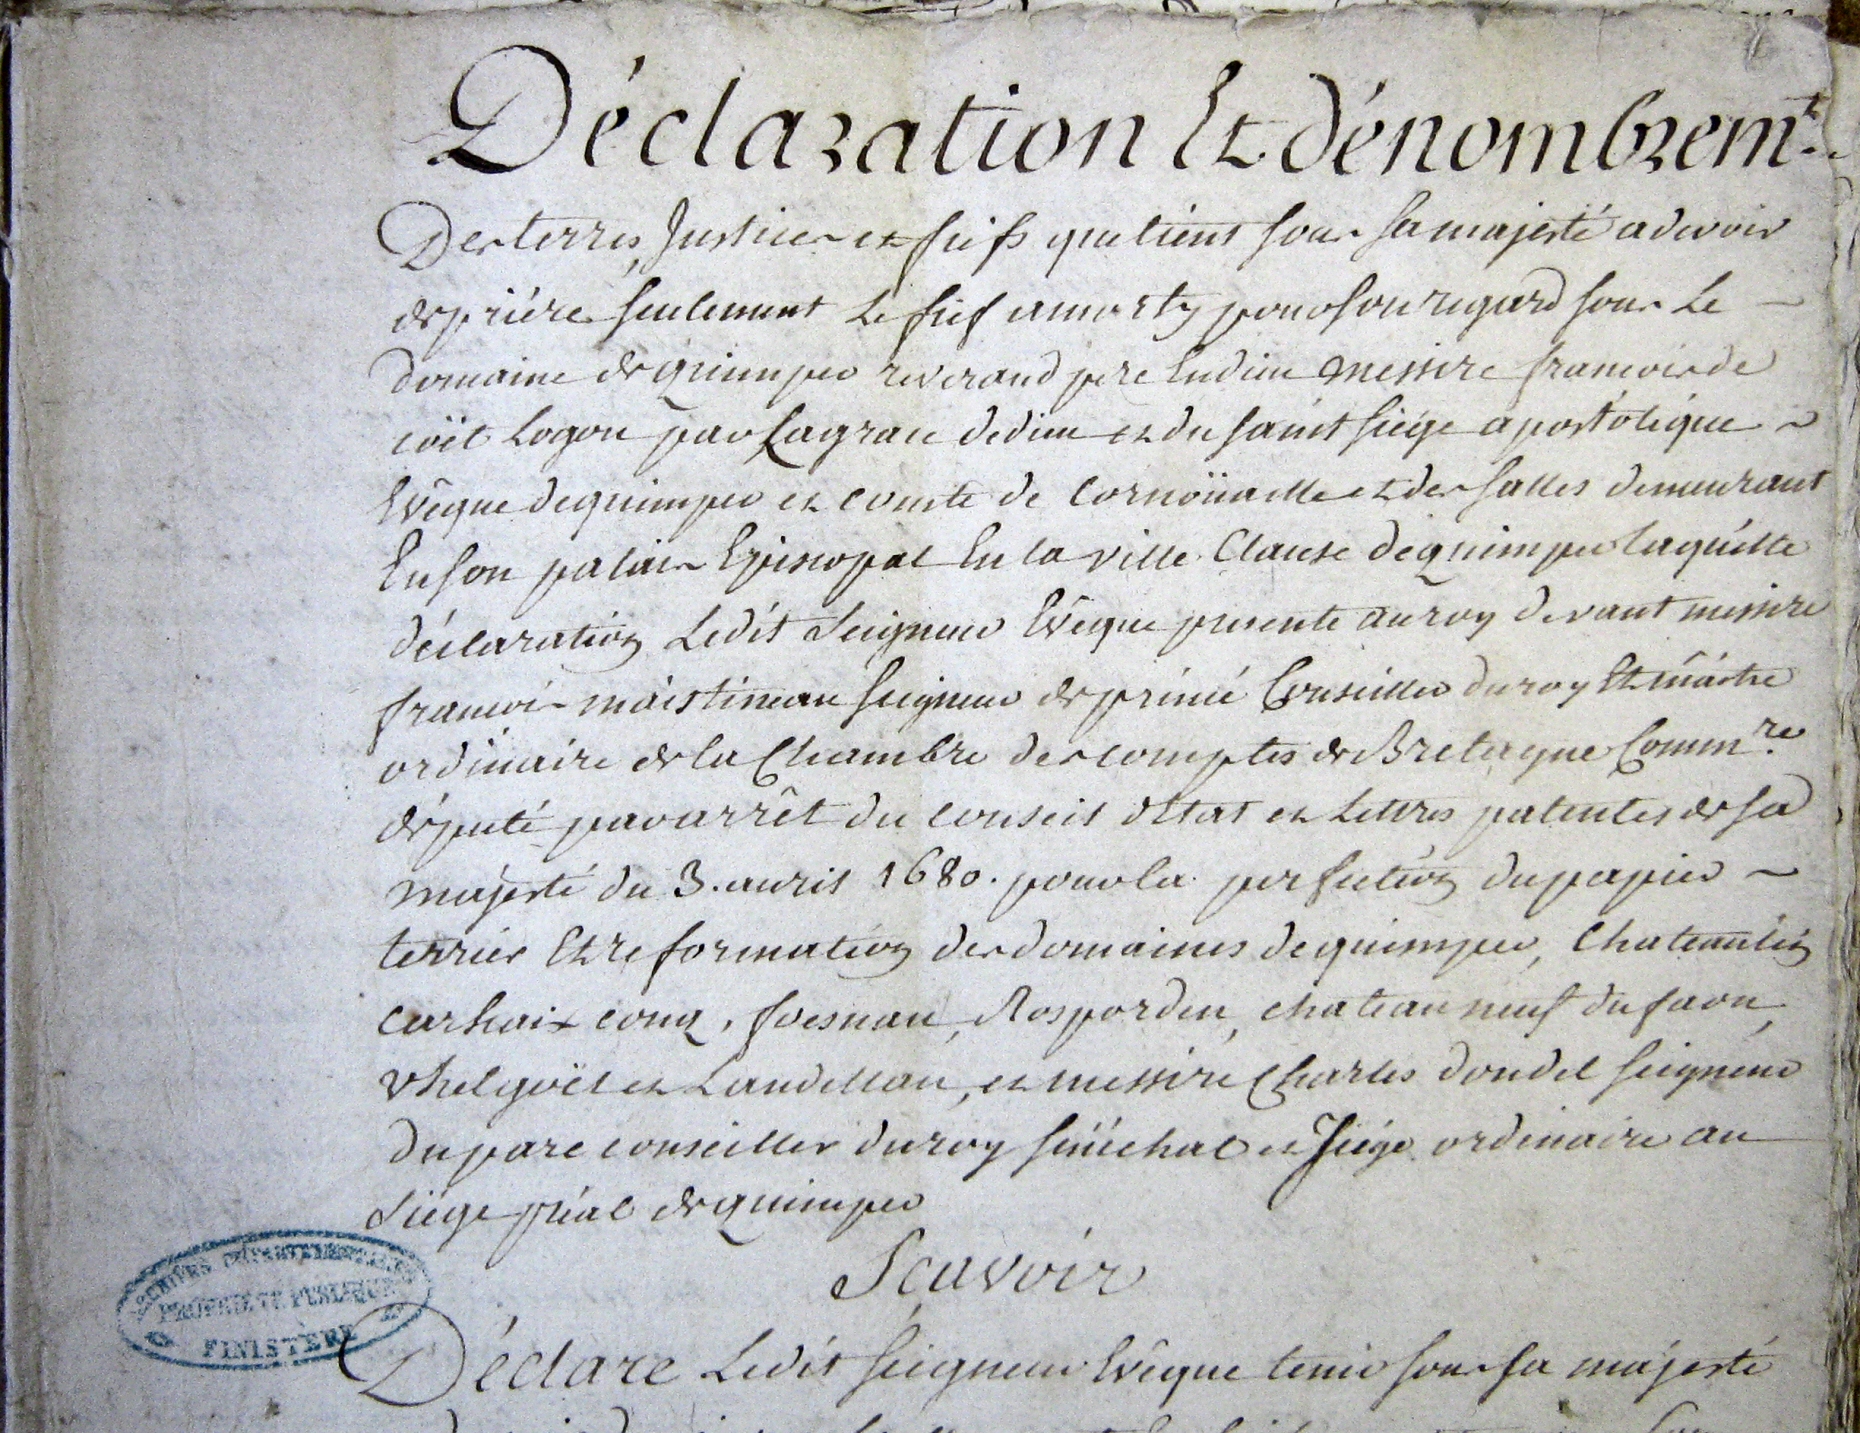 Déclaration Et dénombrem.t
Des terres, Justices et fiefs que tient sous sa majesté a devoir
de priére seulement Le fief amorty pour son regard sous Le
domaine de quimper reverand pere En dieu messire francois de
coët Logon par La grace de dieu et du saint siége apostolique
Evêque de quimper et comte de Cornoüaille et des salles demeurant
En son palais Episcopal En la ville Clause de quimper laquelle
déclaration Ledit Seigneur Evêque presente au roy devant messire
francois maistineau seigneur de princé Conseiller du roy Et maître
ordinaire de la Chambre des comptes de Bretagne Comm.re
député par arrêt du conseil d'Etat et Lettres patentes de sa
majesté du 3. auril 1680. pour la perfection du papier
terrier Et reformation des domaines de quimper, Chateaulin
carhaix conq, foesnan, Rosporden, chateauneuf du faou,
vhelgoët et Landelleau, et messire Charles dondel seigneur
du parc conseiller du roy sénéchal et Juge ordinaire au
siége préal de quimper
Scavoir
Déclare Ledit seigneur Evêque tenir sous sa majesté
ARCHIVES DÉPARTEMENTALES
PROPRIÉTÉ PUBLIQUE
FINISTÈRE